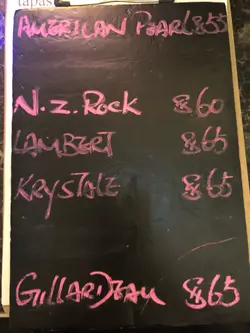 tapas
AMERICAN PEARL $55
N.Z. ROCK $60
LAMBERT $65
KRYSTALE $65
GILLARDEAU $65